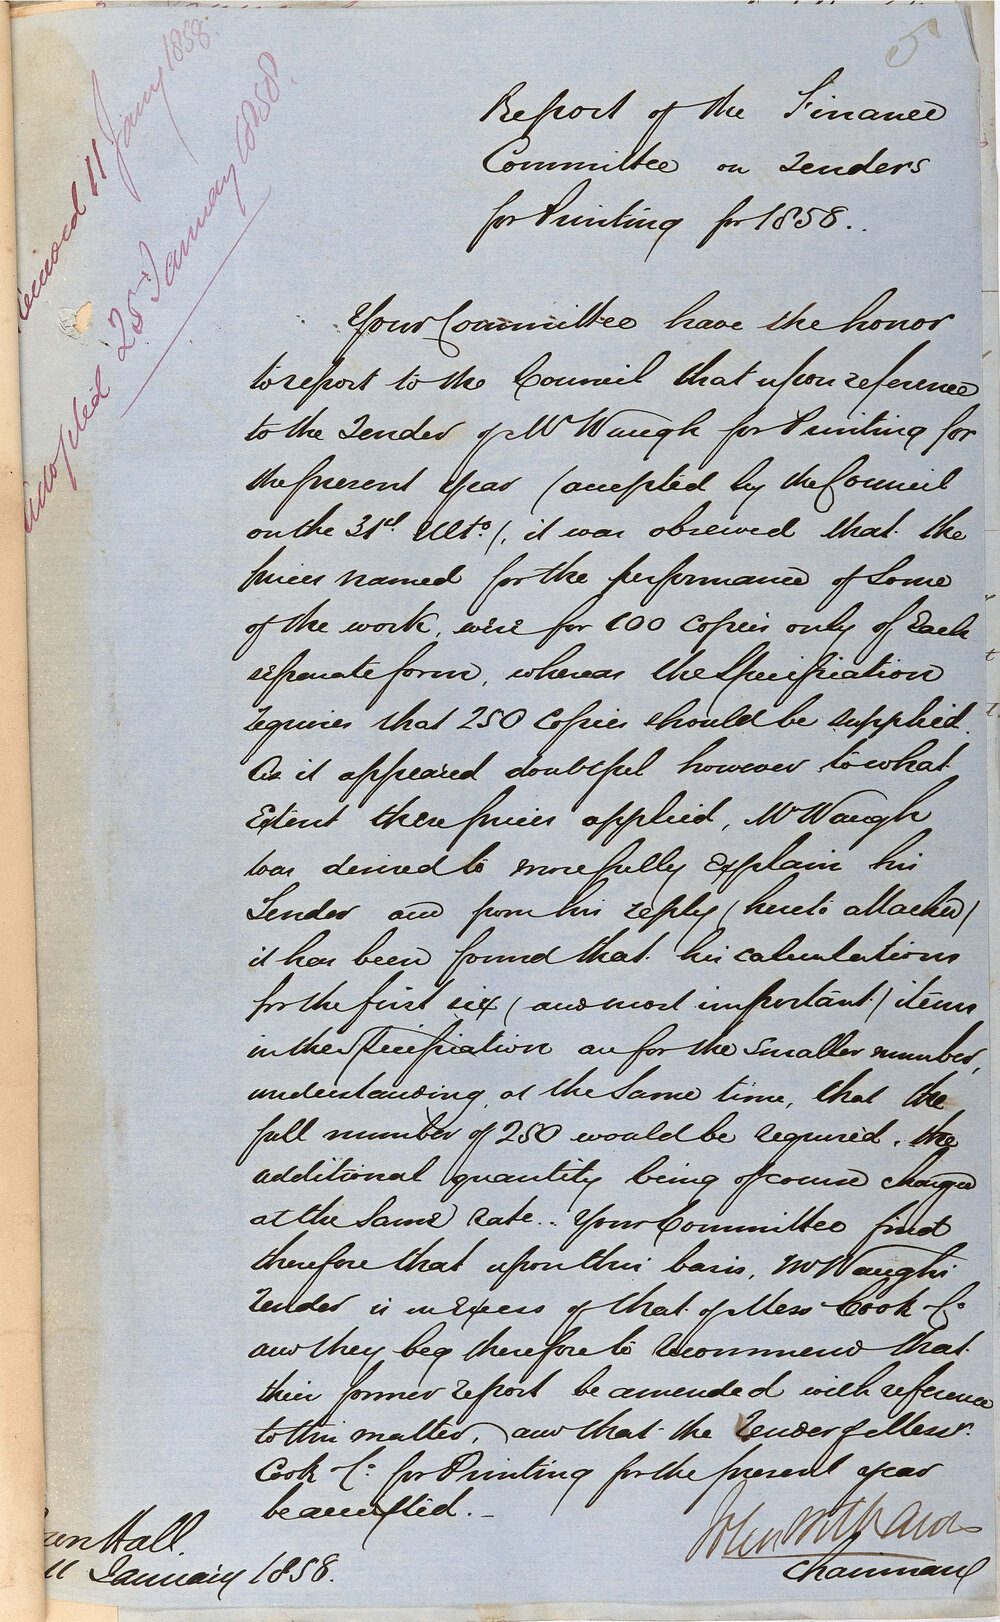 5
11 Jany 1858.
Adopted 25 January 1858.
Report of the Finance
Committee on Tenders
for Printing for 1858..
Your Committee have the honor
to report to the Council that upon reference
to the Tender of Mr Waugh for Printing for
the present year (accepted by the Council
on the 31st Ulto), it was observed that the
prices named for the performance of some
of the work, were for 100 copies only of each
separate form, whereas the Specification
requires that 250 copies should be supplied.
As it appeared doubtful however to what
Extent these prices applied, Mr Waugh
was desired to more fully explain his
Tender and from his reply (hereto attached)
it has been found that his calculations
for the first six (and most important) items
in the Specification are for the smaller number,
understanding, at the same time, that the
full number of 250 would be required, the
additional quantity being of course charged
at the same rate.. Your Committee find
therefore that upon this basis, Mr Waugh's
Tender is in excess of that of Mess Cook & Co
and they beg therefore to recommend that
their former report be amended with reference
to this matter, and that the Tender of Messrs
Cook & Co: for Printing for the present year
be accepted. -
Hall.
11 January 1858.
Chairman